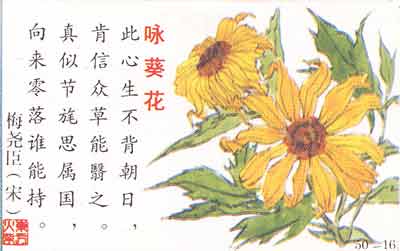 咏葵花
此心生不背朝日，
肯信众草能翳之。
真似节旄思属国，
向来零落谁能持。
梅尧臣（宋）
50－16